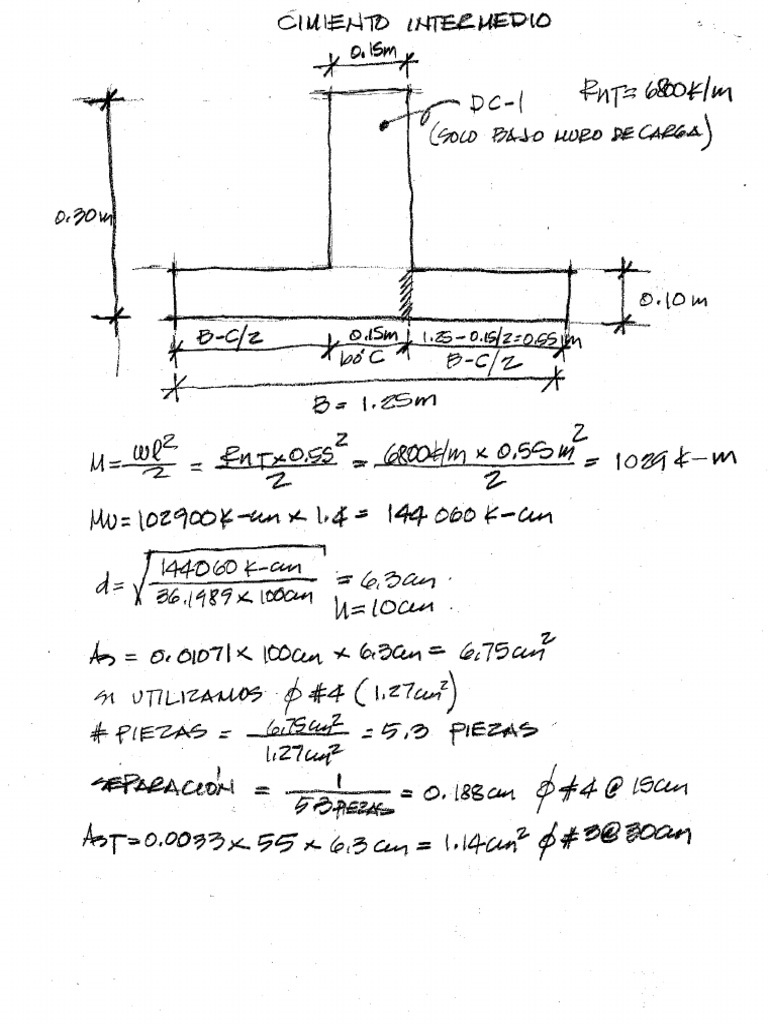 CIMIENTO INTERMEDIO
0.15m
RNT= 6800K/m
DC-1
(SOLO BAJO MURO DE CARGA)
0.30m
0.10m
B-C/2 0.15m 1.25-0.15/2=0.55m
C B-C/2
B= 1.25m
M= wl²/2 = RNT x 0.55²/2 = 6800K/m x 0.55m²/2 = 1029 K-m
MU=102900K-cm x 1.4 = 144 060 K-cm
d= √144060 K-cm/36.1989 x 100cm = 6.3cm.
H=10cm.
As = 0.01071 x 100cm x 6.3cm = 6.75cm²
SI UTILIZAMOS ϕ #4 (1.27cm²)
# PIEZAS = 6.75cm²/1.27cm² = 5.3 PIEZAS
SEPARACIÓN = 1/5.3 PIEZAS = 0.188cm ϕ #4 @ 15cm
AST=0.0033 x 55 x 6.3cm = 1.14cm² ϕ #3@30cm